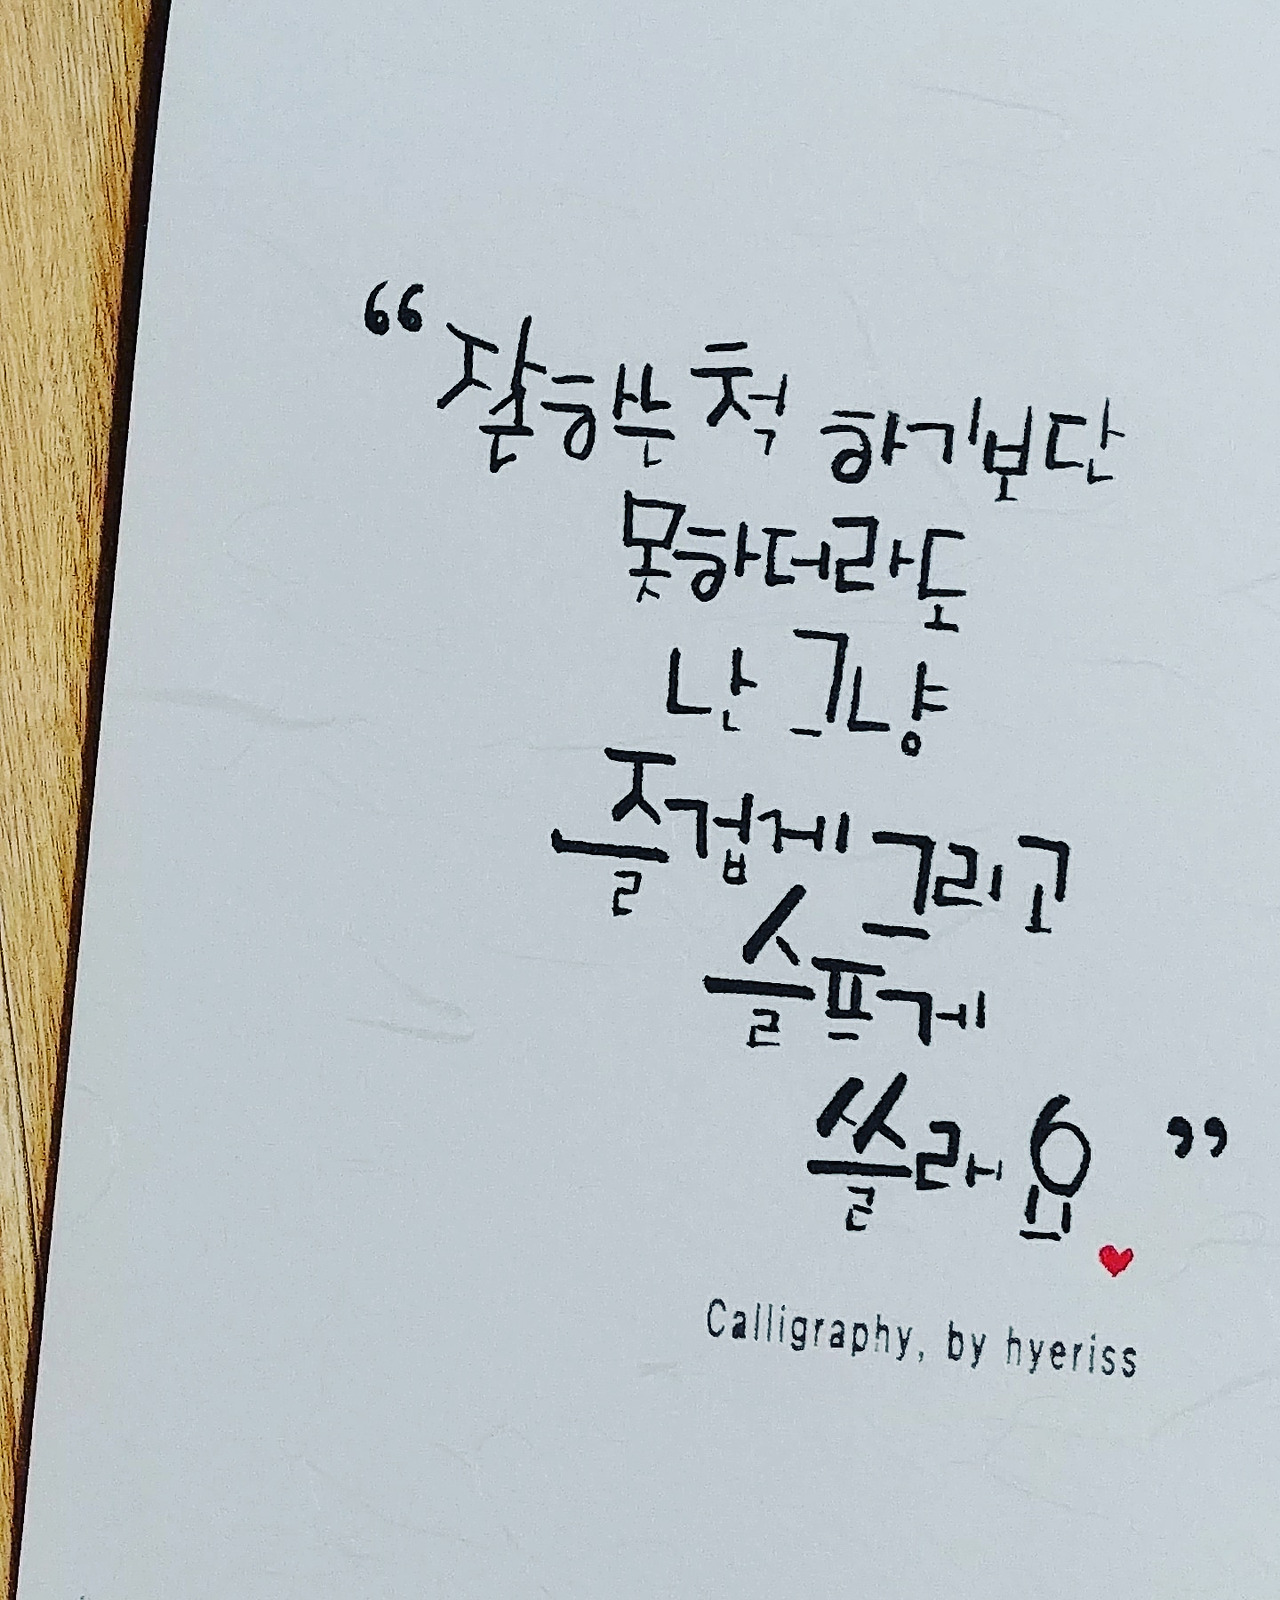 “잘하는 척 하기보단
못하더라도
난 그냥
즐겁게 그리고
슬프게
쓸래요”
Calligraphy, by hyeriss